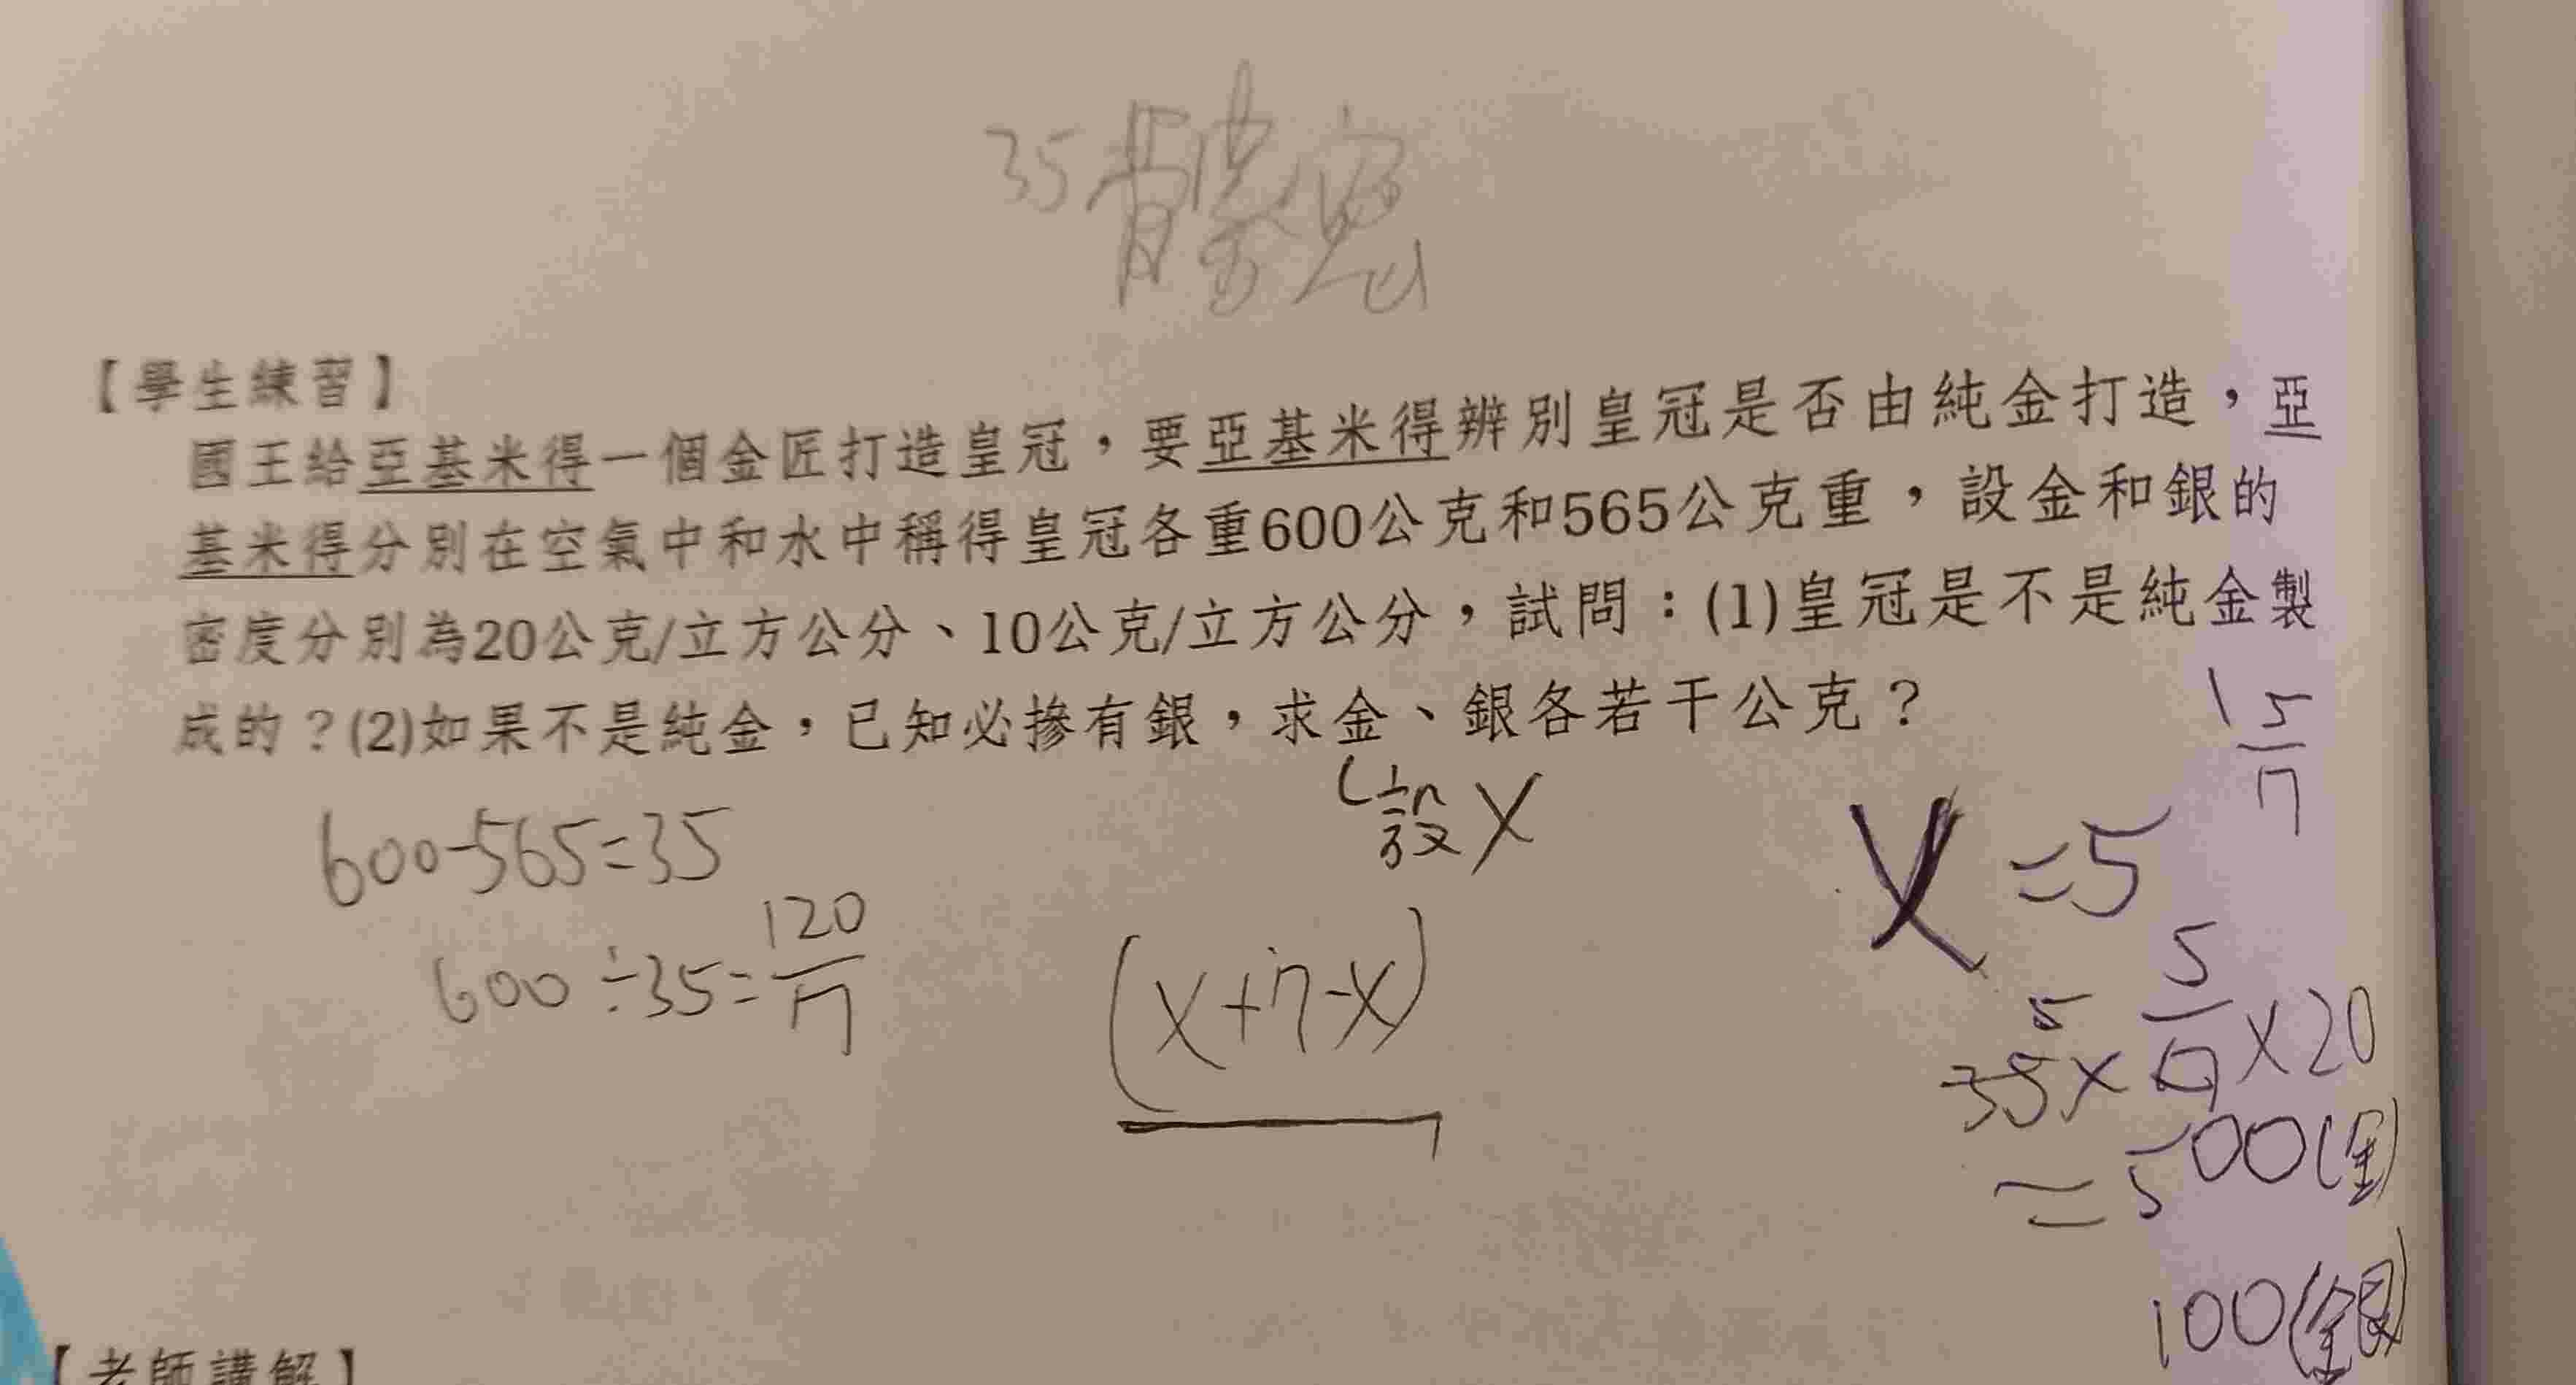 35體寬
【學生練習】
國王給亞基米得一個金匠打造皇冠，要亞基米得辨別皇冠是否由純金打造，亞
基米得分別在空氣中和水中稱得皇冠各重600公克和565公克重，設金和銀的
密度分別為20公克/立方公分、10公克/立方公分，試問：(1)皇冠是不是純金製
成的？(2)如果不是純金，已知必摻有銀，求金、銀各若干公克？
1 5/7
600-565=35
設X
X=5
600÷35=120/7
(X+7-X)
35×5/7×20
5
=500(金)
100(銀)
【老師講解】